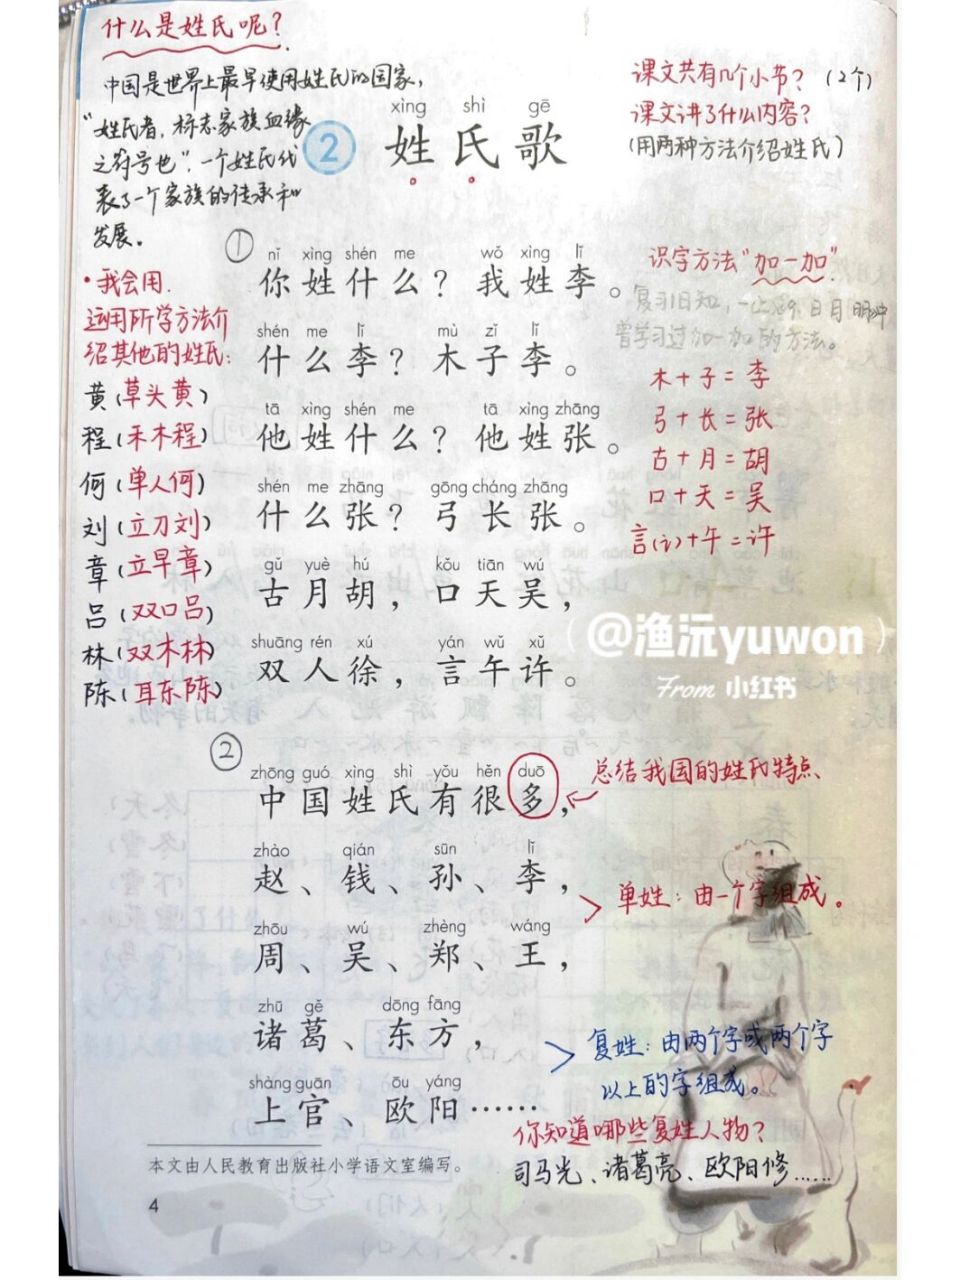 什么是姓氏呢？
中国是世界上最早使用姓氏的国家，
“姓氏者，标志家族血缘
之符号也”，一个姓氏代
表了一个家族的传承和
发展。
课文共有几个小节？（2个）
课文讲了什么内容？
（用两种方法介绍姓氏）
xìng shì gē
2 姓氏歌
·我会用.
运用所学方法介
绍其他的姓氏：
黄（草头黄）
程（禾木程）
何（单人何）
刘（立刀刘）
章（立早章）
吕（双口吕）
林（双木林）
陈（耳东陈）
①
nǐ xìng shén me wǒ xìng lǐ
你姓什么？我姓李。
shén me lǐ mù zǐ lǐ
什么李？木子李。
tā xìng shén me tā xìng zhāng
他姓什么？他姓张。
shén me zhāng gōng cháng zhāng
什么张？弓长张。
gǔ yuè hú kǒu tiān wú
古月胡，口天吴，
shuāng rén xú yán wǔ xǔ
双人徐，言午许。
识字方法“加一加”.
复习旧知，
曾学习过加一加的方法。
木＋子＝李
弓＋长＝张
古＋月＝胡
口＋天＝吴
言(讠)＋午＝许
@渔沅yuwon
From 小红书
②
zhōng guó xìng shì yǒu hěn duō
中国姓氏有很多，
总结我国的姓氏特点
zhào qián sūn lǐ
赵、钱、孙、李，
单姓：由一个字组成。
zhōu wú zhèng wáng
周、吴、郑、王，
zhū gě dōng fāng
诸葛、东方，
复姓：由两个字或两个字
以上的字组成。
shàng guān ōu yáng
上官、欧阳……
你知道哪些复姓人物？
司马光、诸葛亮、欧阳修……
本文由人民教育出版社小学语文室编写。
4